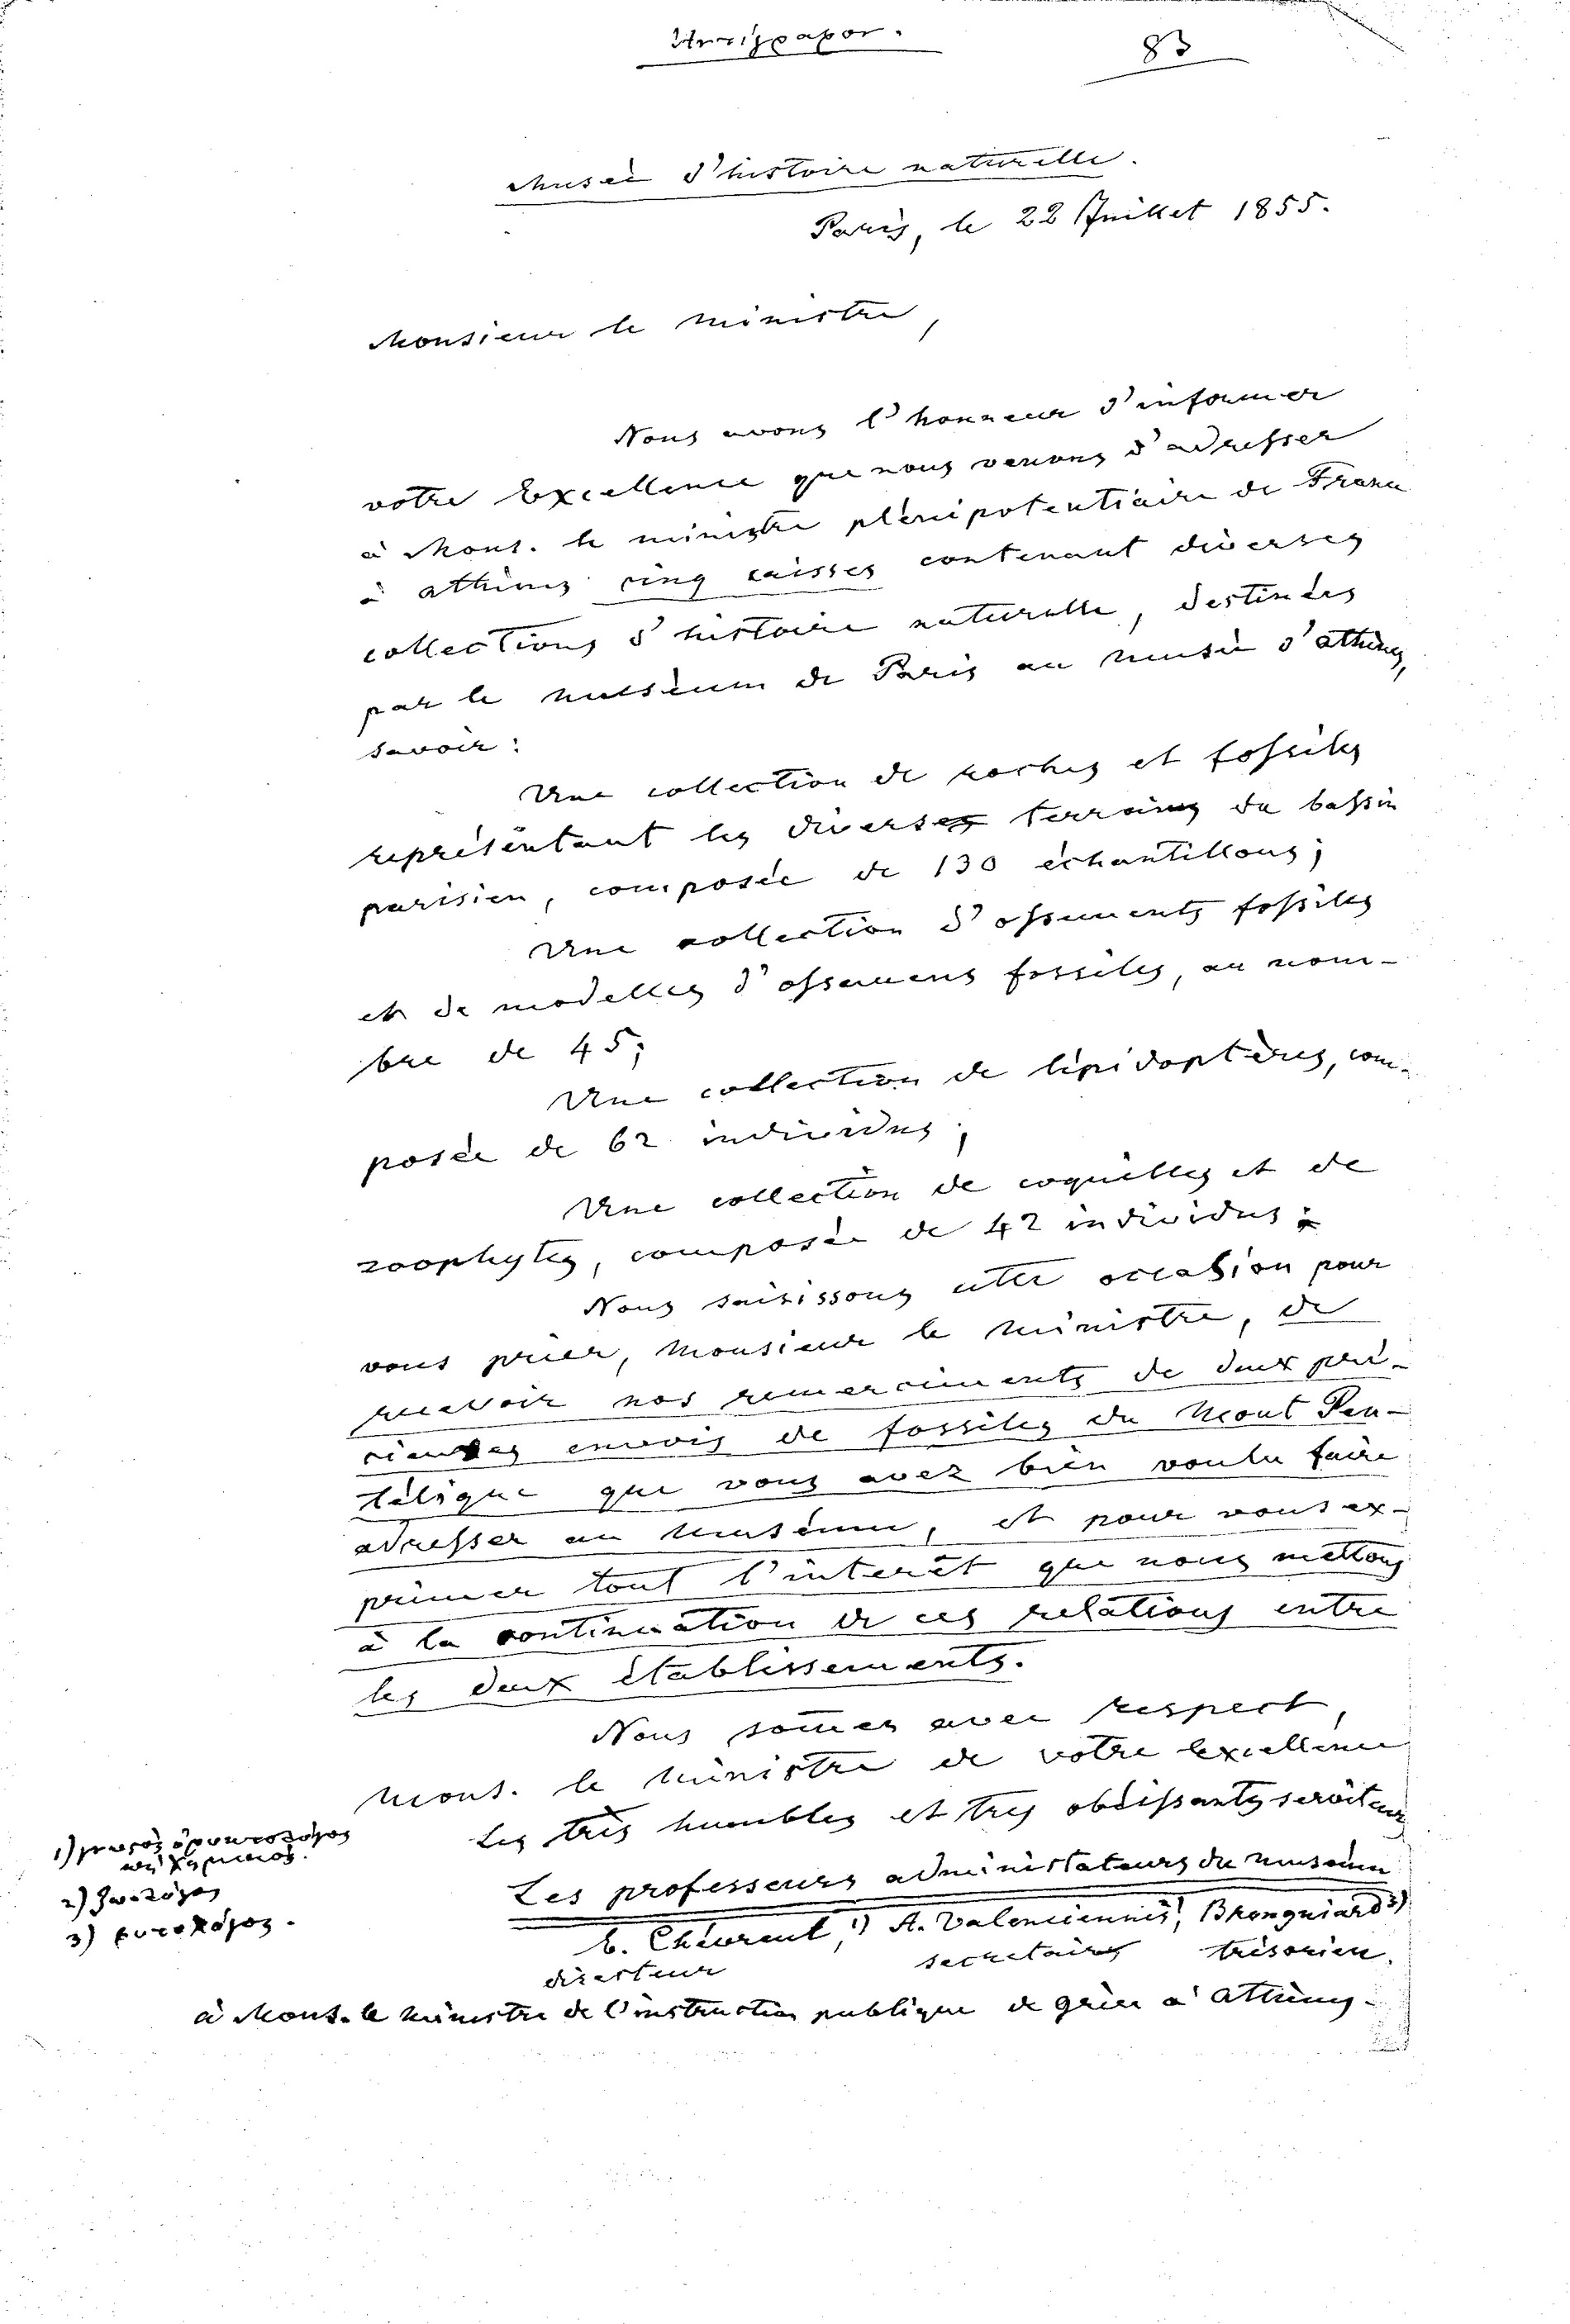 Ἀντίγραφον.
83
Musée d'histoire naturelle.
Paris, le 22 Juillet 1855.
Monsieur le ministre,
Nous avons l'honneur d'informer
votre Excellence que nous venons d'adresser
à Mons. le ministre plénipotentiaire de France
à Athènes cinq caisses contenant diverses
collections d'histoire naturelle, destinées
par le muséum de Paris au musée d'Athènes,
savoir:
Une collection de roches et fossiles
représentant les diverses terrains du bassin
parisien, composée de 130 échantillons;
Une collection d'ossements fossiles
et de modelles d'ossemens fossiles, au nom-
bre de 45;
Une collection de lépidoptères, com-
posée de 62 individus;
Une collection de coquilles et de
zoophytes, composée de 42 individus;
Nous saisissons cette occasion pour
vous prier, Monsieur le ministre, de
recevoir nos remerciments de deux pré-
cieuses envois de fossiles du Mont Pen-
télique que vous avez bien voulu faire
adresser au muséum, et pour vous ex-
primer tout l'interêt que nous mettons
à la continuation de ces relations entre
les deux établissements.
Nous som̄es avec respect,
Mons. le ministre de votre Excellence
Les très humbles et très obéissants serviteurs
Les professeurs administateurs du muséum
E. Chevreul,1) A. Valenciennes, Brongniard3)
directeur secretaire trésorier.
1)
2) ζωολόγος
3) φυτολόγος.
à Mons. le ministre de l'instruction publique de Grèce à Athènes.